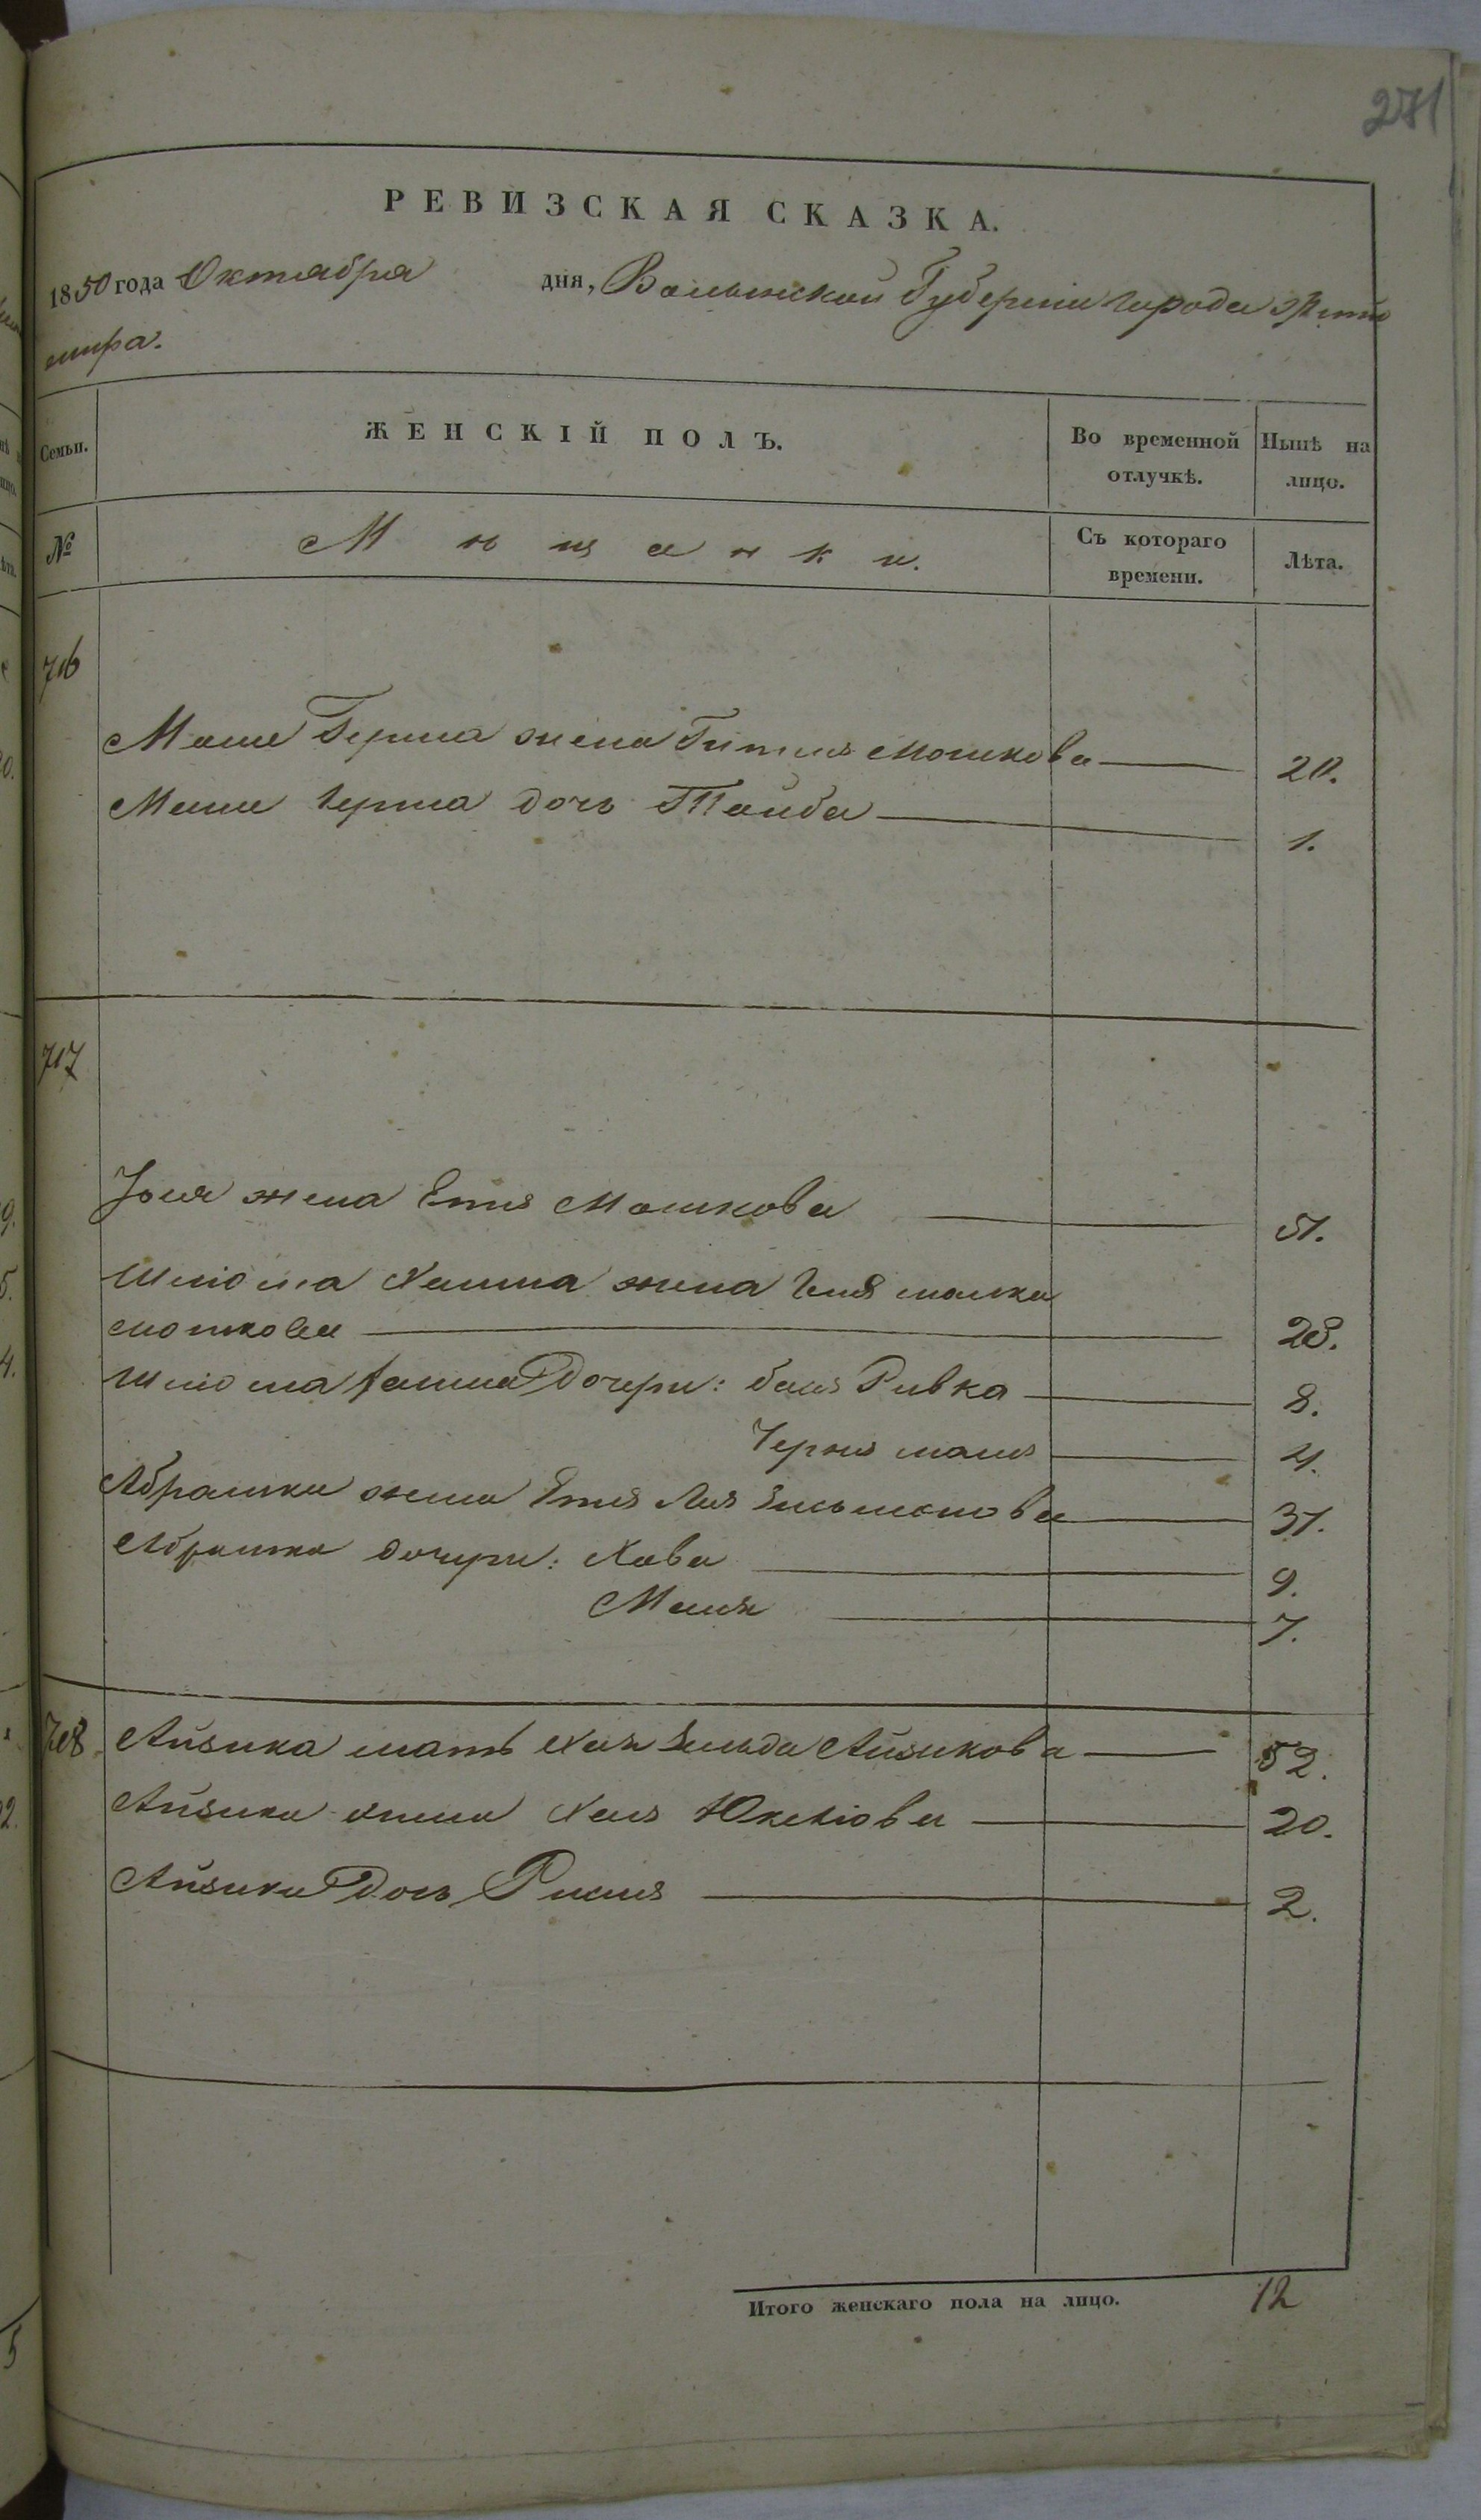 271
РЕВИЗСКАЯ СКАЗКА.
1850 года Октября дня, Волынской Губерніи города Жито
мира.
Семьи. ЖЕНСКІЙ ПОЛЪ. Во временной отлучкѣ. Нынѣ на лицо.
№ Мѣщанки. Съ котораго времени. Лѣта.
716
Моше Герша жена Гитля Мошкова 20.
Моше Герша дочь Тайба 1.
717
жена Етя Мошкова 51.
Шлiома жена малка
мошкова 28.
Шлiома дочери: Ривка 8.
Черня 4.
Абрамка жена Етя Лея 31.
Абрамка дочери: Хава 9.
7.
718 Айзика мать Хая Зельда Айзикова 52.
Айзика жена Хая 20.
Айзика дочь 2.
Итого женскаго пола на лицо. 12